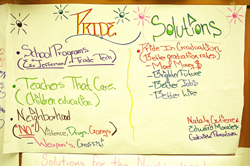 PRIDE
Solutions
School Programs
(Ex: Jefferson / Trade Tech)
Teachers That Care
(Children education)
Neighborhood
(NO) Violence, Drugs, Gangs
Weapon's, Graffiti
Pride In Graduation
(Better graduation rates)
Mad Money $
-Brighter Future
-Better Jobs
-Better Life
Edward Morales
Solutions for the